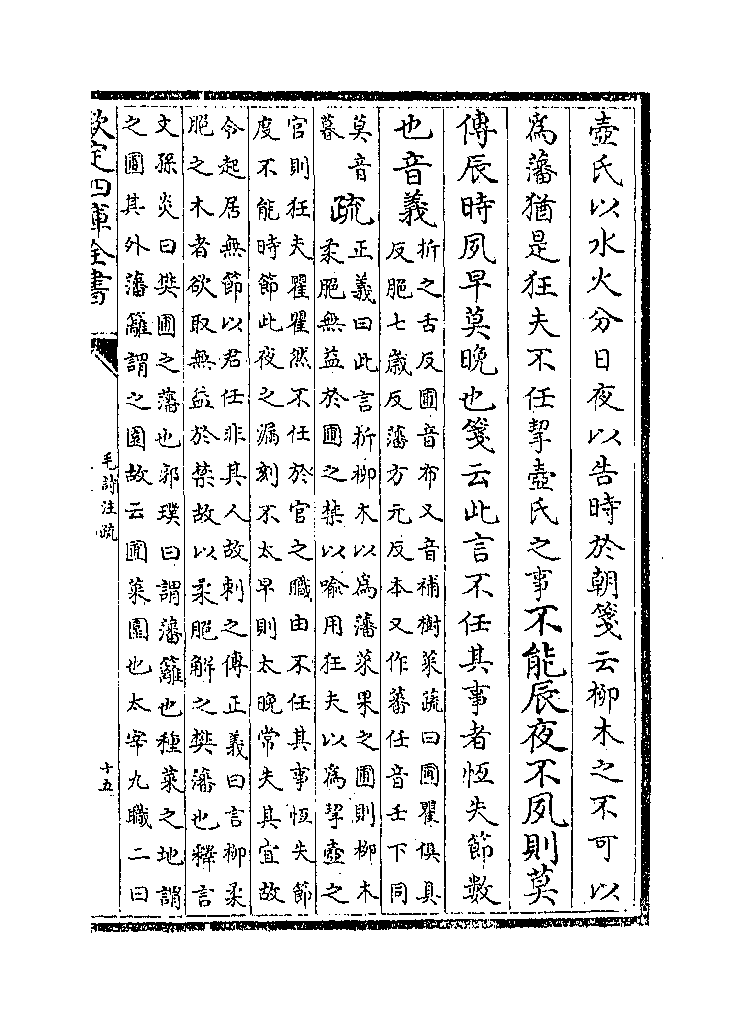 壺氏以水火分日夜以告時於朝箋云柳木之不可以
為藩猶是狂夫不任挈壺氏之事不能辰夜不夙則莫
傳辰時夙早莫晚也箋云此言不任其事者恆失節數
也音義
折之舌反圃音布又音補樹菜蔬曰圃瞿俱具
反脆七歲反藩方元反本又作蕃任音壬下同
莫音
暮
疏
正義曰此言折柳木以為藩菜果之圃則柳木
柔脆無益於圃之禁以喻用狂夫以為挈壺之
官則狂夫瞿瞿然不任於官之職由不任其事恆失節
度不能時節此夜之漏刻不太早則太晚常失其宜故
令起居無節以君任非其人故刺之傳正義曰言柳柔
脆之木者欲取無益於禁故以柔脆解之樊藩也釋言
文孫炎曰樊圃之藩也郭璞曰謂藩籬也種菜之地謂
之圃其外藩籬謂之園故云圃菜園也太宰九職二曰
欽定四庫全書
毛詩注疏
十五